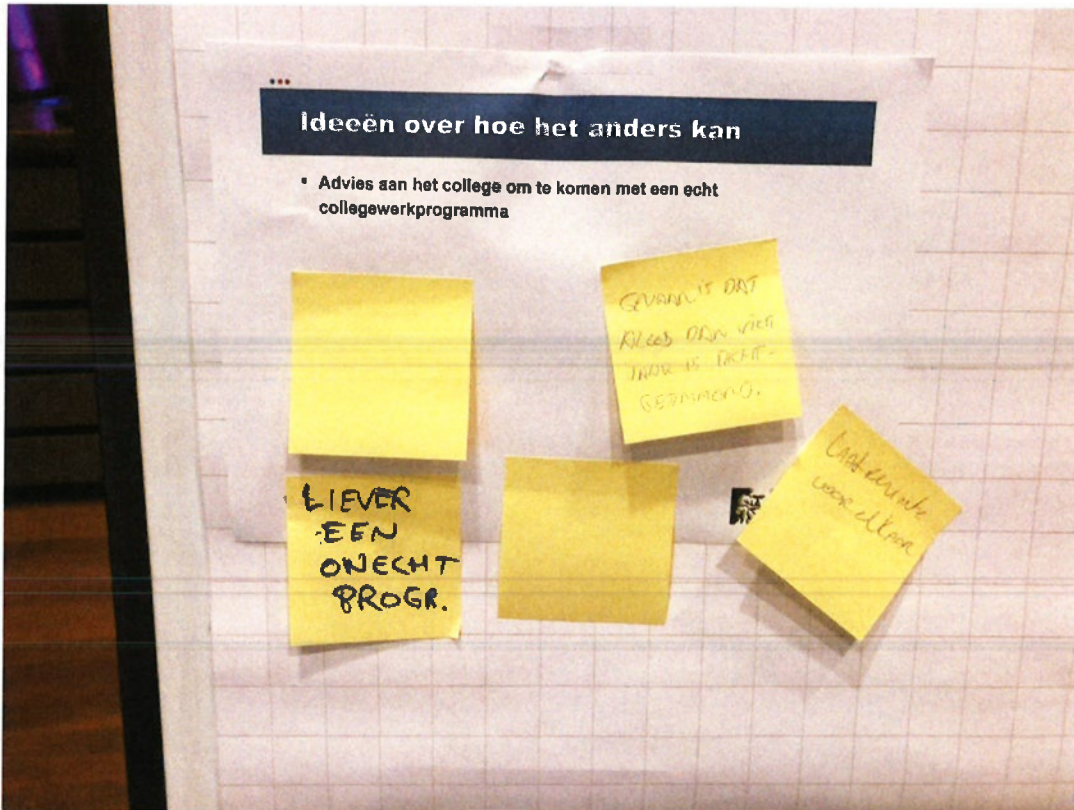 Ideeën over hoe het anders kan
▪ Advies aan het college om te komen met een echt
collegewerkprogramma
GEVAAR IS DAT
ALLES DAN VIER
JAAR IS DICHT-
GETIMMERD.
LIEVER
EEN
ONECHT
PROGR.
Laat ruimte
voor elkaar